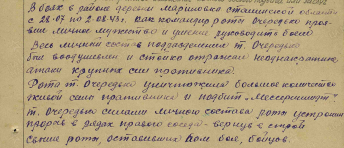 В боях в районе деревни Мариновка Сталинской области
с 28.07 по 2.08.43 г. как командир роты т. Очередько проя-
вил личное мужество и умение руководить боем.
Весь личный состав подразделения т. Очередько
был воодушевлен и стойко отражал неоднократные
атаки крупных сил противника.
Рота т. Очередько уничтожила большое количество
живой силы противника и подбит "Мессершмитт"
т. Очередько силами личного состава роты устранил
прорыв в рядах правого соседа - вернув в строй
свыше роты, оставивших поле боя, бойцов.